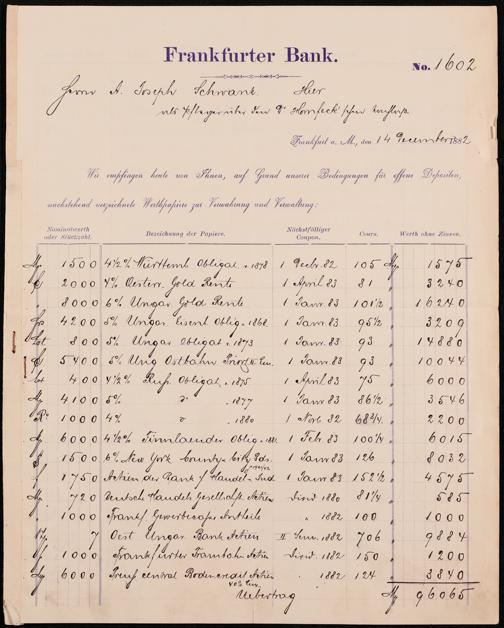 Frankfurter Bank.
No. 1602
Herrn A. Joseph Schwanz. Hier
als Pfleger der Dr Hornfeck'schen
Frankfurt a. M., den 14 December 1882
Wir empfingen heute von Ihnen, auf Grund unserer Bedingungen für offene Depositen,
nachstehend verzeichnete Werthpapiere zur Verwahrung und Verwaltung:
Nominalwerth oder Stückzahl. Bezeichnung der Papiere. Nächstfälliger Coupon. Cours. Werth ohne Zinsen.
1500 4½% Württemb Obligat. v. 1878 1 82 105 1575
2000 4% Oesterr. Gold Rente 1 April 83 81 3240
8000 6% Ungar Gold Rente 1 Janr 83 101½ 16240
4200 5% Ungar Eisenb Oblig. 1868 1 Janr 83 95½ 3209
800 5% Ungar Obligat v. 1873 1 Janr 83 93 14880
5400 5% Ung Ostbahn Prior 1 Janr 83 93 10044
400 4½% Russ Obligat. v. 1875 1 April 83 75 6000
4100 5% " 1877 1 Janr 83 86½ 3546
1000 4% " 1880 1 Novb 82 68¾ 2200
6000 4½% Finnlaender Oblig. 1 Feb 83 100¼ 6015
1500 6% New York County City Bds. 1 Janr 83 126 8032
1750 Actien der Bank f Handel Ind 1 Janr 83 152½ 4575
720 Deutsch Handels Gesellschaft Actien Divid 1880 81¼ 585
1000 Frankf Gewerbecasse Antheile " 1882 100 1000
7 Oest Ungar Bank Actien II Sem. 1882 706 9884
1000 Frankfurter Trambahn Actien Divid. 1882 150 1200
6000 Preuss central Bodencredit Actien " 1882 124 3840
40%
Uebertrag 96065